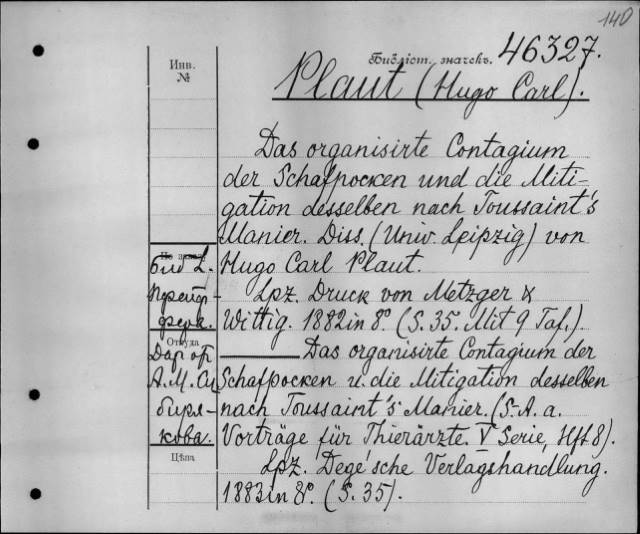 140
Библіот. значекъ. 46327.
Инв.
№
Plaut (Hugo Carl).
Das organisirte Contagium
der Schafpocken und die Miti-
gation desselben nach Toussaint's
Manier. Diss. (Univ. Leipzig) von
Hugo Carl Plaut.
Lpz. Druck von Metzger &
Wittig. 1882 in 8º. (S. 35. Mit 9 Taf.).
Das organisirte Contagium der
Schafpocken u. die Mitigation desselben
nach Toussaint's Manier. (S.-A. a.
Vorträge für Thierärzte. V Serie, Hft 8).
Lpz. Degé'sche Verlagshandlung.
1883 in 8º. (S. 35).
Откуда
Дар от
А. М. Си
биря-
кова.
Цѣна